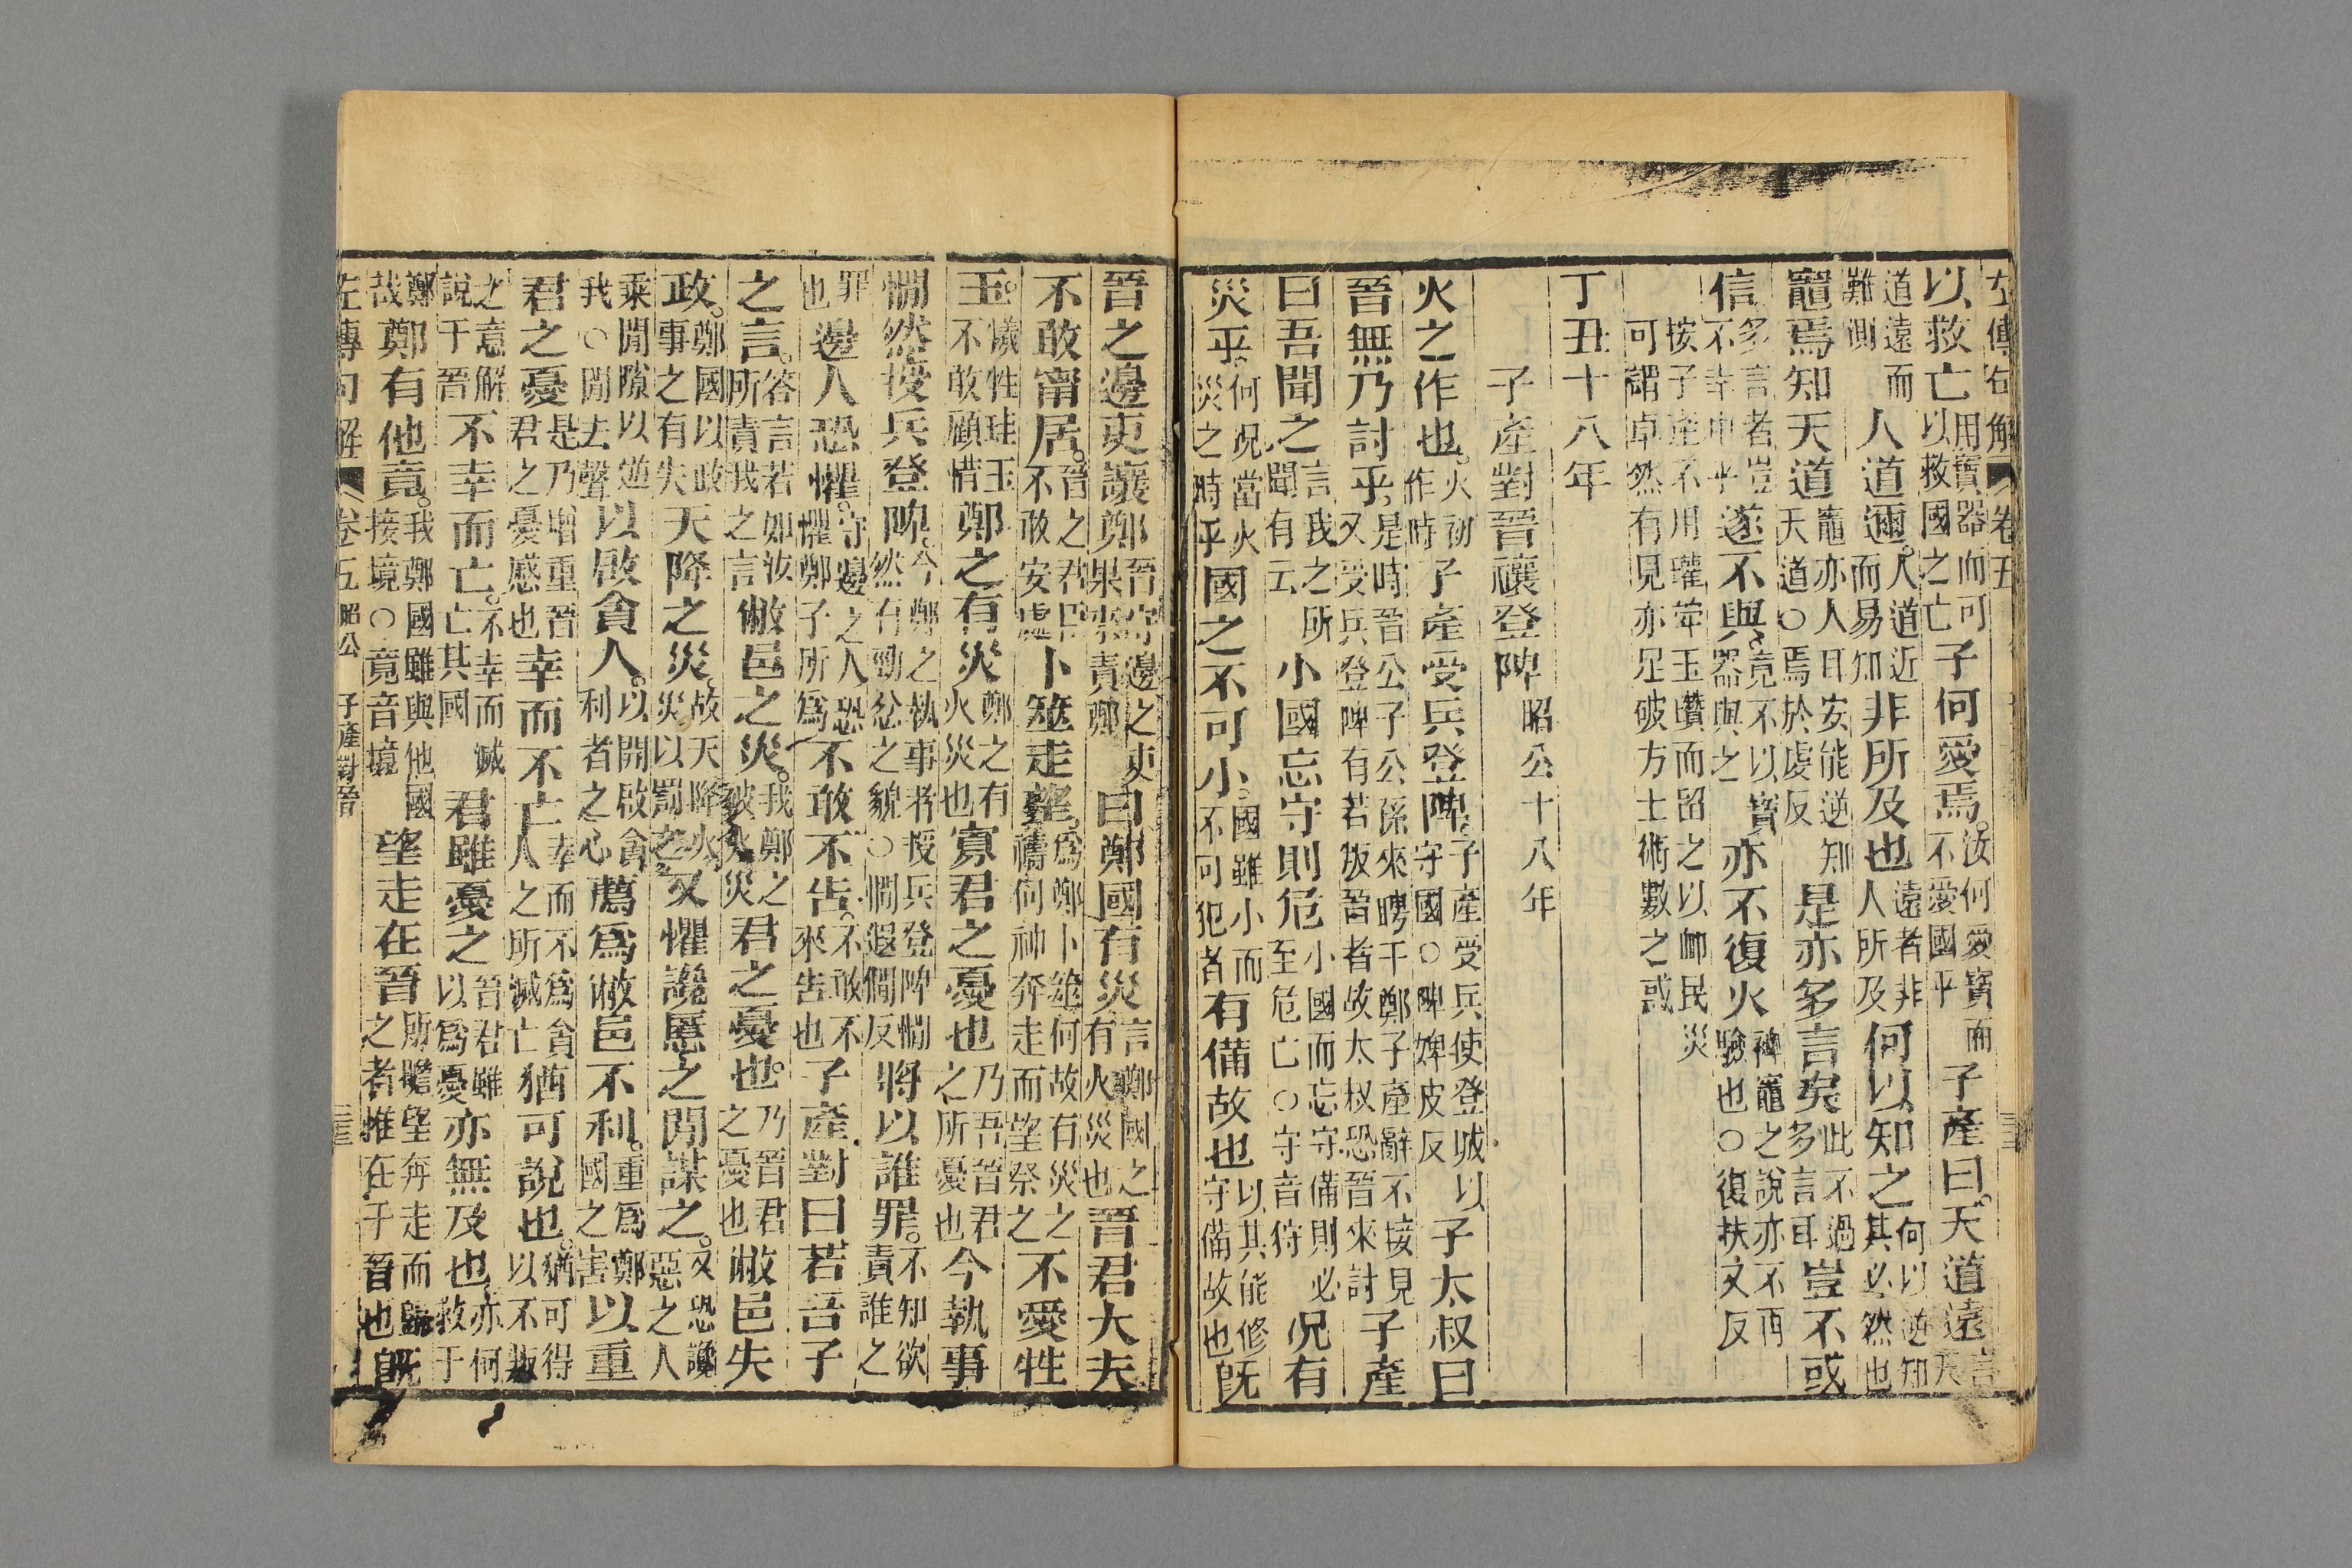 左傳句解 卷五
以救亡用寶器而可以救國之亡子何愛焉汝何愛寶而不愛國乎子產曰天道遠言天
道遠而難測人道邇人道近而易知非所及也遠者非人所及何以知之何以逆知其必然也
竈焉知天道竈亦人耳安能逆知天道○焉於虔反是亦多言矣此不過多言耳豈不或
信多言者豈不幸中乎遂不與竟不以寶器與之亦不復火裨竈之說亦不再驗也○復扶又反
按子產不用瓘斝玉瓚而留之以卹民災可謂卓然有見亦足破方士術數之惑
丁丑十八年
子產對晉讓登陴昭公十八年
火之作也火初作時子產受兵登陴子產受兵使登城以守國○陴婢皮反子太叔曰
晉無乃討乎是時晉公子公孫來聘于鄭子產辭不接見又受兵登陴有若叛晉者故太叔恐晉來討子產
曰吾聞之言我之所聞有云小國忘守則危小國而忘守備則必至危亡○守音狩况有
災乎何况當火災之時乎國之不可小國雖小而不可犯者有備故也以其能修守備故也旣
晉之邊吏讓鄭晉守邊之吏果來責鄭曰鄭國有災言鄭國之有火災也晉君大夫
不敢甯居晉之君臣不敢安處卜筮走望爲鄭卜筮何故有災之禱何神奔走而望祭之不愛牲
玉犠牲珪玉不敢顧惜鄭之有災鄭之有火災也寡君之憂也乃吾晉君之所憂也今執事
憪然授兵登陴今鄭之執事者授兵登陴憪然有勁忿之貌○憪遐僩反將以誰罪不知欲責誰之
罪也邊人恐懼守邊之人恐懼鄭子所爲不敢不告不敢不來告也子產對曰若吾子
之言答言若如汝所責我之言敝邑之災我鄭之被火災君之憂也乃晉君之憂也敝邑失
政鄭國以政事之有失天降之災故天降火災以罰之又懼讒慝之閒謀之又恐讒慝之人
乘閒隙以遊我○閒去聲以啟貪人以開啟貪利者之心薦爲敝邑不利重爲鄭國之害以重
君之憂是乃增重晉君之憂慼也幸而不亡幸而不爲貪人之所滅亡猶可說也猶可得以不叛
之意解說于晉不幸而亡不幸而滅亡其國君雖憂之晉君雖以爲憂亦無及也亦何救于
鄭哉鄭有他竟我鄭國雖與他國接境○竟音境望走在晉所瞻望奔走而歸之者惟在于晉也旣
左傳句解 卷五昭公 子產對晉